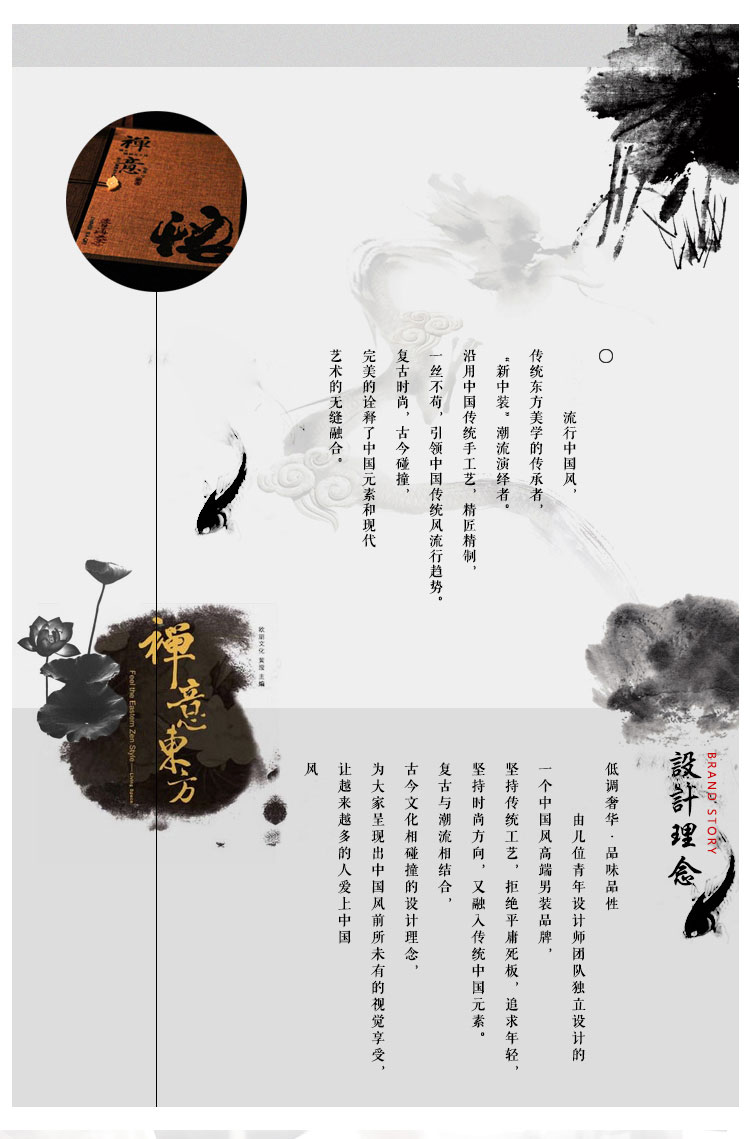 禅
意
流行中国风，
传统东方美学的传承者，
“新中装”潮流演绎者。
沿用中国传统手工艺，精匠精制，
一丝不苟，引领中国传统风流行趋势。
复古时尚，古今碰撞，
完美的诠释了中国元素和现代
艺术的无缝融合。
欧朋文化 黄滢 主编
禅意東方
Feel the Eastern Zen Style — Living Space
BRAND STORY
設計理念
低调奢华·品味品性
由几位青年设计师团队独立设计的
一个中国风高端男装品牌，
坚持传统工艺，拒绝平庸死板，追求年轻，
坚持时尚方向，又融入传统中国元素。
复古与潮流相结合，
古今文化相碰撞的设计理念，
为大家呈现出中国风前所未有的视觉享受，
让越来越多的人爱上中国
风